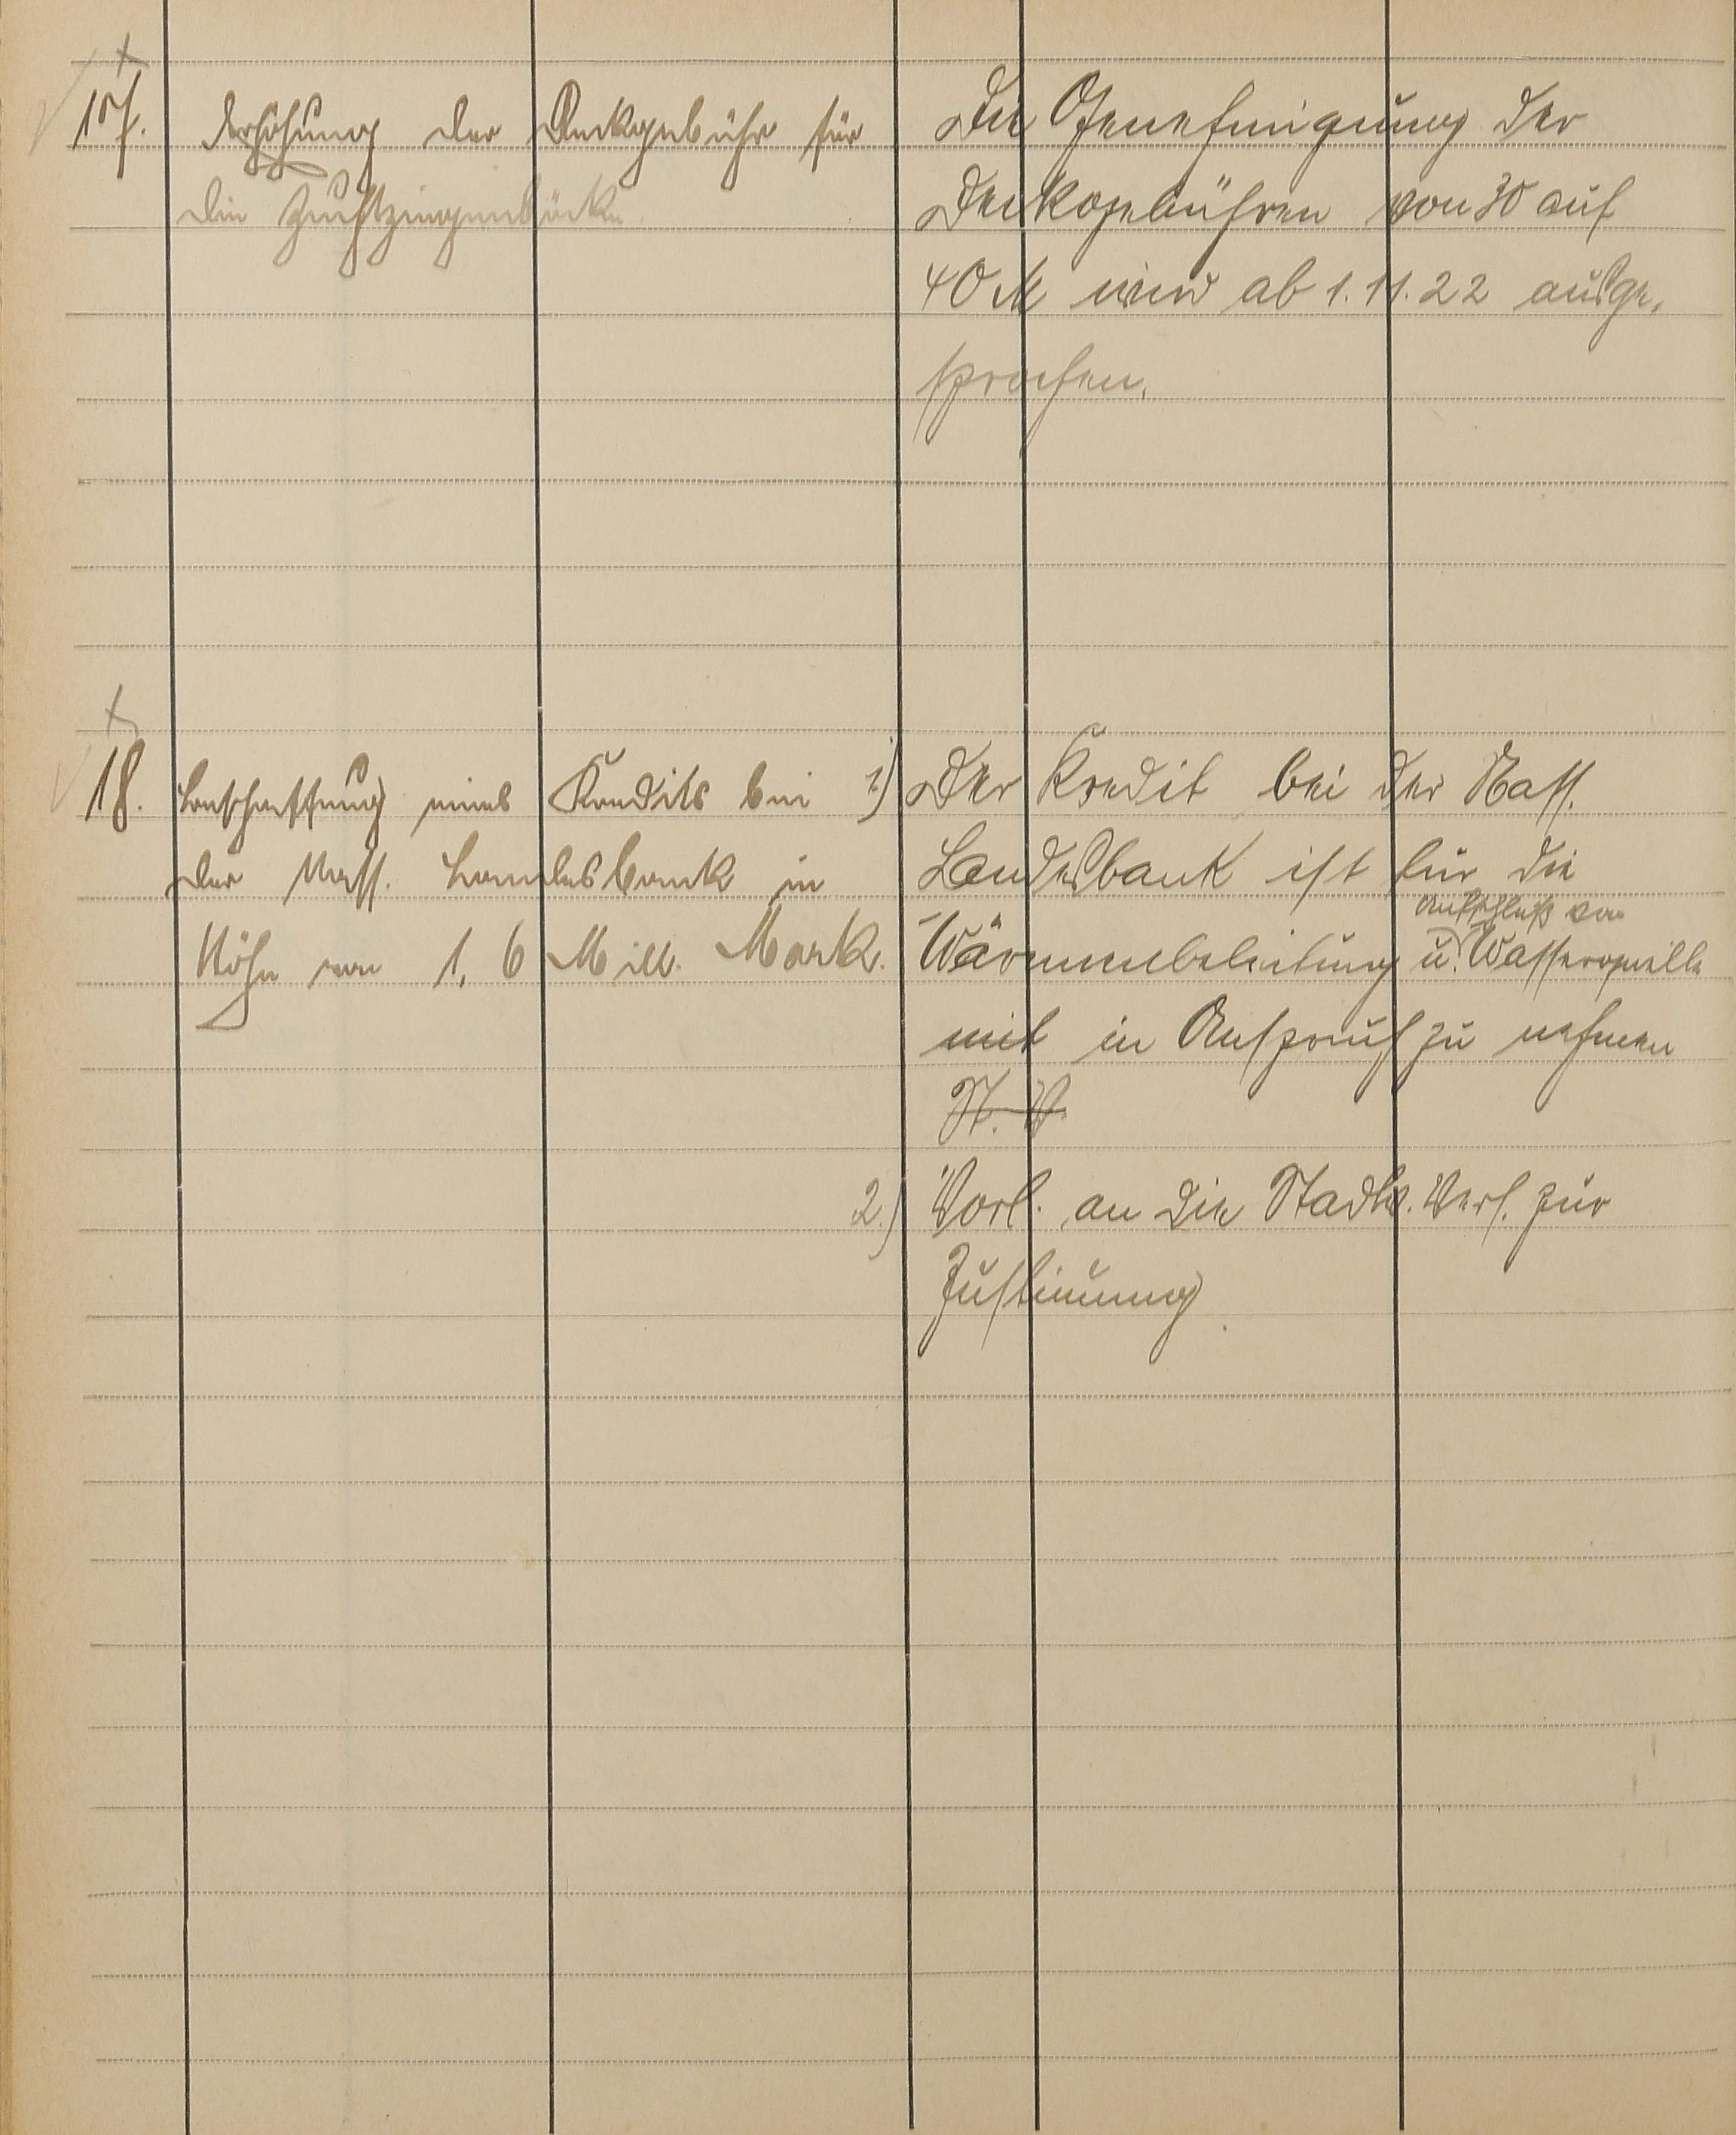 17. Erhöhung der Deckgebühr für
die Zuchtziegenböcke.
Die Genehmigung der
Deckgebühren von 30 auf
40 M wird ab 1.11.22 ausge-
sprochen.
18. Beschaffung eines Kredits bei
der Nass. Landesbank in
Höhe von 1,6 Mill. Mark.
1.) Der Kredit bei der Nass.
Landesbank ist für die
Anschluß der
u. Wasserquelle
mit in Anspruch zu nehmen
N. V.
2.) Vorl. an die Stadtv. Vers. zur
Zustimmung.